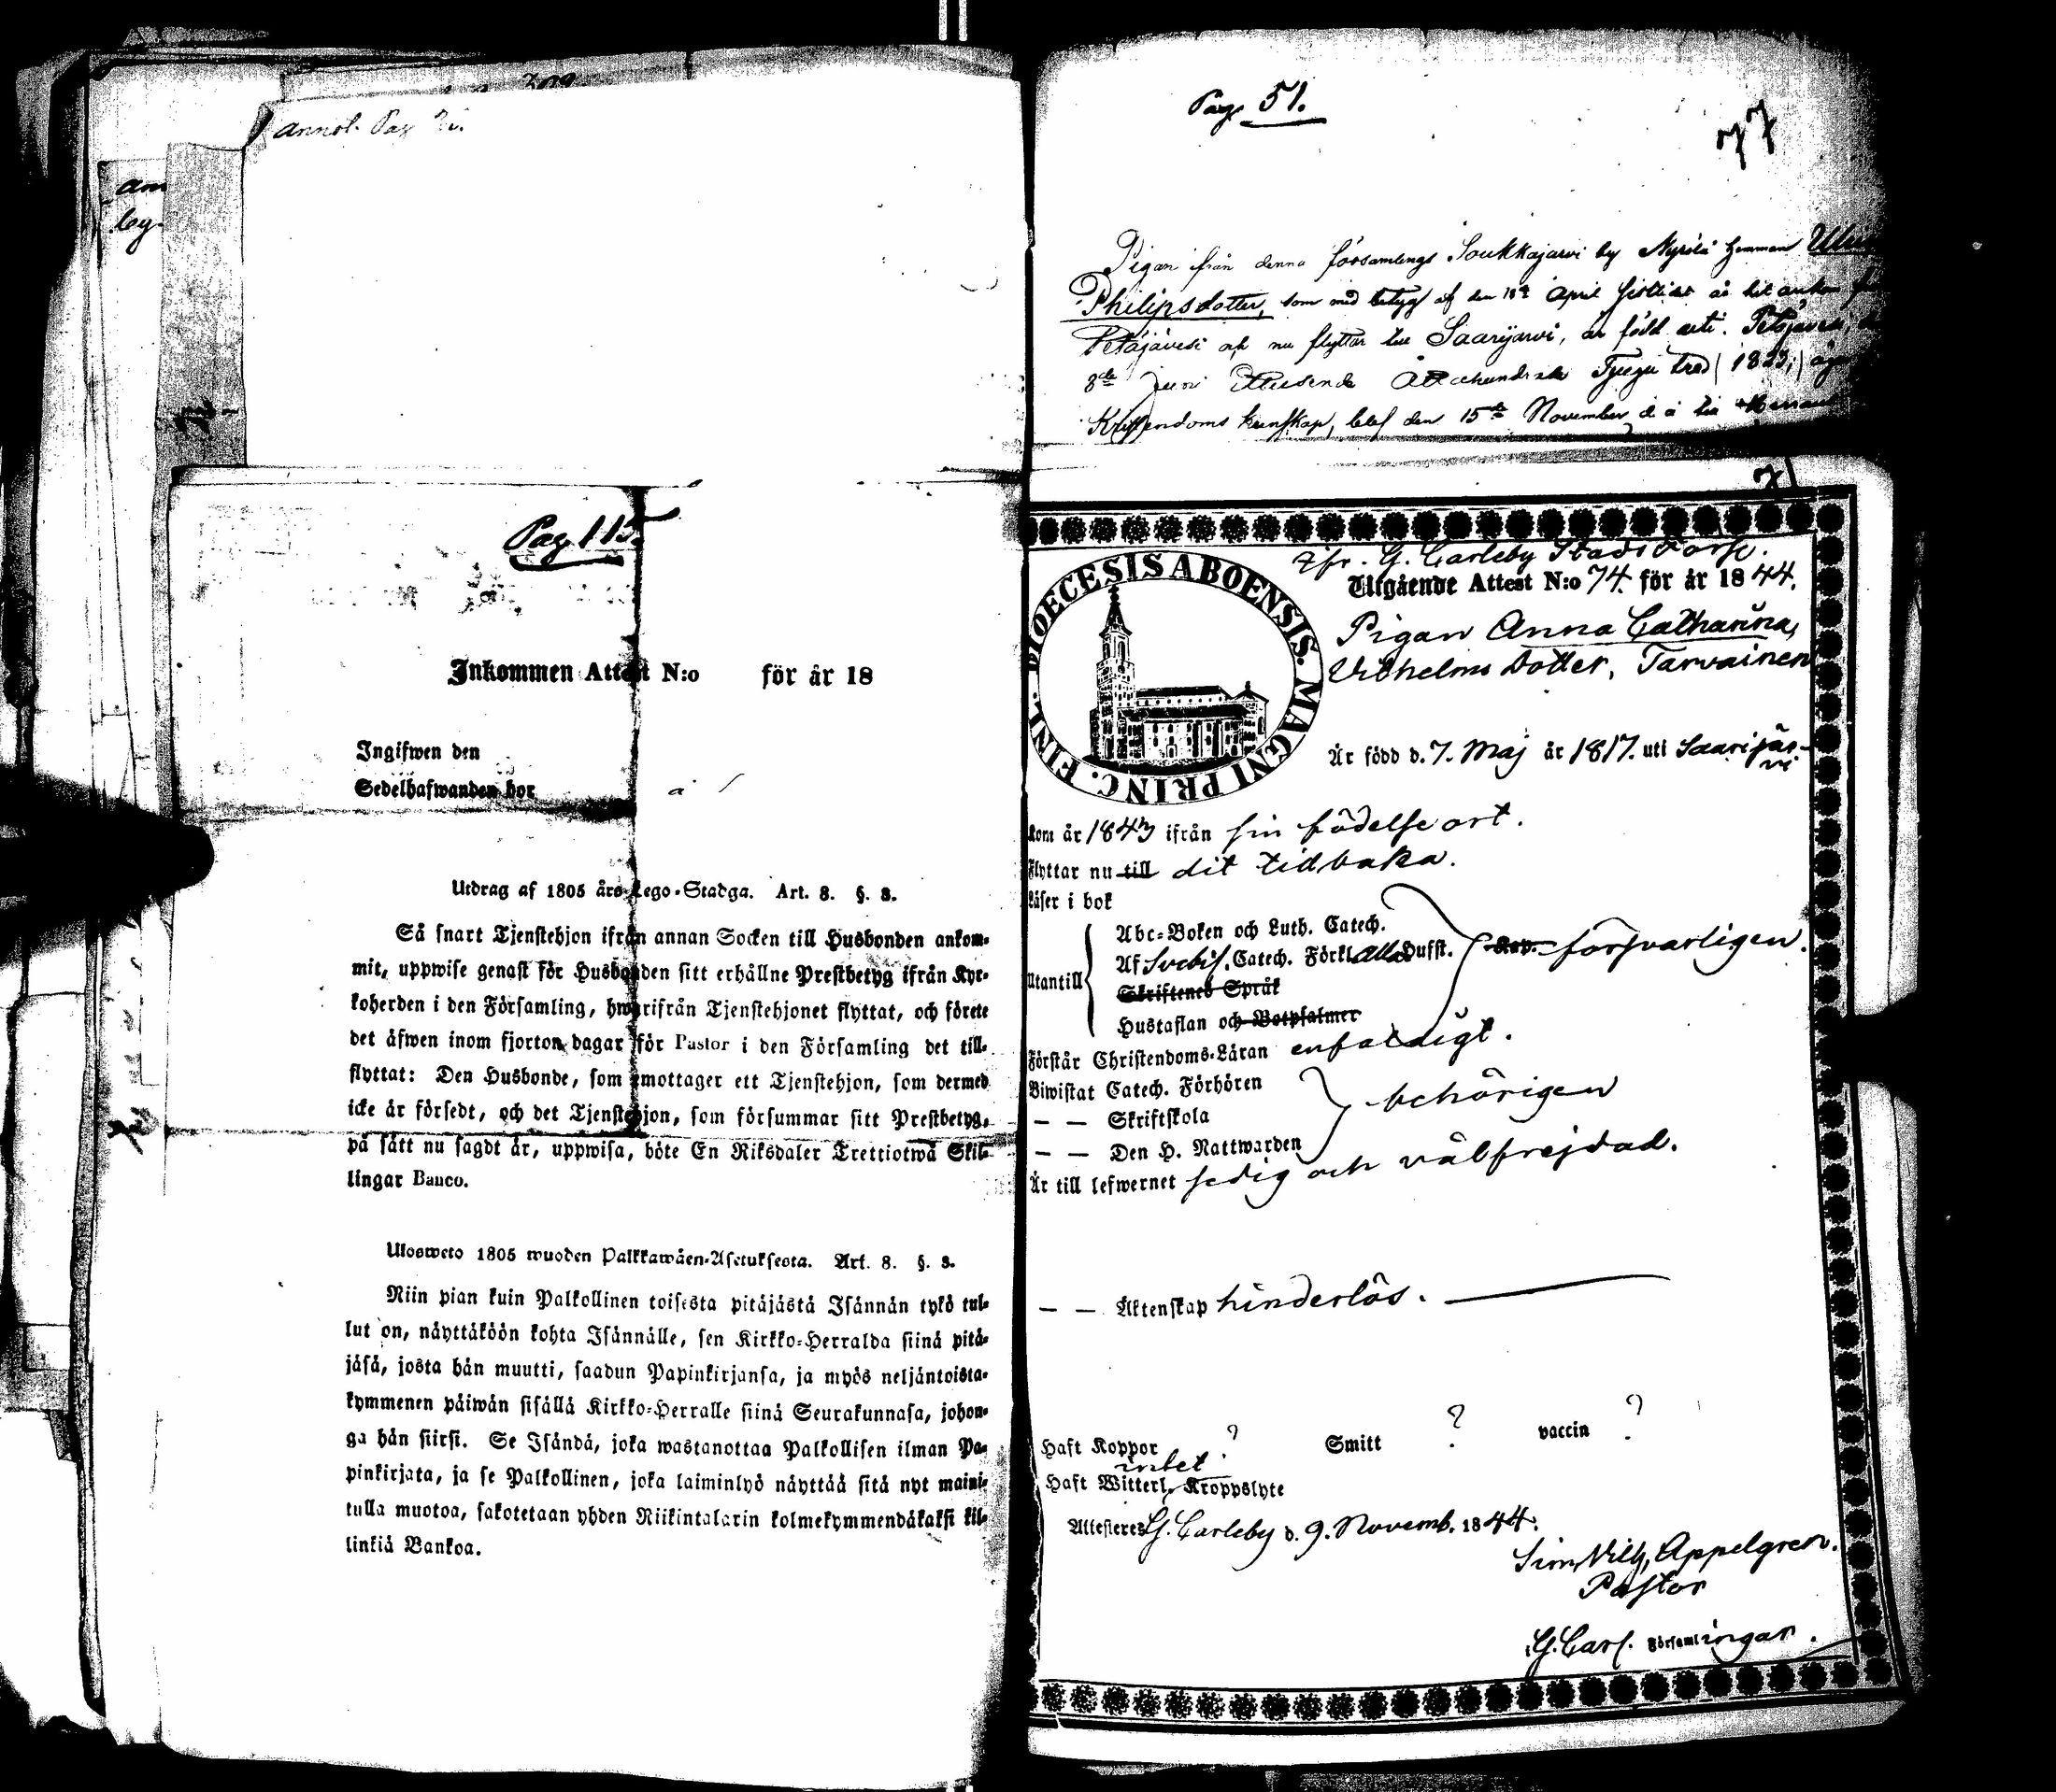 annot. Pag
Pag 115.
Inkommen Attest N:o för år 18
Ingifwen den
Sedelhafwanden bor
Utdrag af 1805 års Lego-Stadga. Art. 8. §. 3.
Så snart Tjenstehjon ifrån annan Socken till Husbonden ankom-
mit, uppwise genast för Husbonden sitt erhållne Prestbetyg ifrån Kyr-
koherden i den Församling, hwarifrån Tjenstehjonet flyttat, och förete
det äfwen inom fjorton dagar för Pastor i den Församling det till-
flyttat: Den Husbonde, som emottager ett Tjenstehjon, som dermed
icke är försedt, och det Tjenstehjon, som försummar sitt Prestbetyg,
på sätt nu sagdt är, uppwisa, böte En Riksdaler Trettiotwå Skil-
lingar Banco.
Uloswето 1805 wuoden Palkkawäen-Asetuksesta. Art. 8. §. 3.
Niin pian kuin Palkollinen toisesta pitäjästä Isännän tykö tul-
lut on, näyttäköön kohta Isännälle, sen Kirkko-Herralda siinä pitä-
jäsä, josta hän muutti, saadun Papinkirjansa, ja myös neljäntoista-
kymmenen päiwän sisällä Kirkko-Herralle siinä Seurakunnasa, johon-
ga hän siirsi. Se Isändä, joka wastanottaa Palkollisen ilman Pa-
pinkirjata, ja se Palkollinen, joka laiminlyö näyttää sitä nyt maini-
tulla muotoa, sakotetaan yhden Riikintalarin kolmekymmendäkaksi kil-
linkiä Bankoa.
Pag 51.
77
Pigan ifrån denna församlings Soukkajärvi by hemman
Philipsdotter, som med betyg af den April sistlidet år hit ankom
Petäjävesi och nu flyttar till Saarijärvi, är född uti Petäjävesi
8de Juni Ettusende Åttahundrade Tjugu tred (1823,) äger
Kristendoms kunskap, blef den 15de November d. å. till
DIOECESIS ABOENSIS. MAGNI PRINC. FINL.
ifr. G. Carleby Stads Förs.
Utgående Attest N:o 74. för år 1844.
Pigan Anna Catharina,
Vilhelms dotter, Tarvainen
Är född d. 7. Maj år 1817. uti Saarijär-
vi
kom år 1843 ifrån sin födelse ort.
Flyttar nu till dit tidbaka.
Läser i bok
Abc-Boken och Luth. Catech.
Af Svebil. Catech. Förkl. alla Hufst. försvarligen.
Utantill
Skriftenes Språk
Hustaflan och Botpsalmer
Förstår Christendoms-Läran enfaldigt.
Biwistat Catech. Förhören
— — Skriftskola behörigen
— — Den H. Nattwarden
Är till lefwernet sedig och välfrejdad.
— — Äktenskap hinderlös.
Haft Koppor ? Smitt ? vaccin ?
intet
Haft Witterl. Kroppslyte
Attesteres G. Carleby d. 9. Novemb. 1844.
Sim. Vilh. Appelgren.
Pastor
G. Carl. Församlingar.